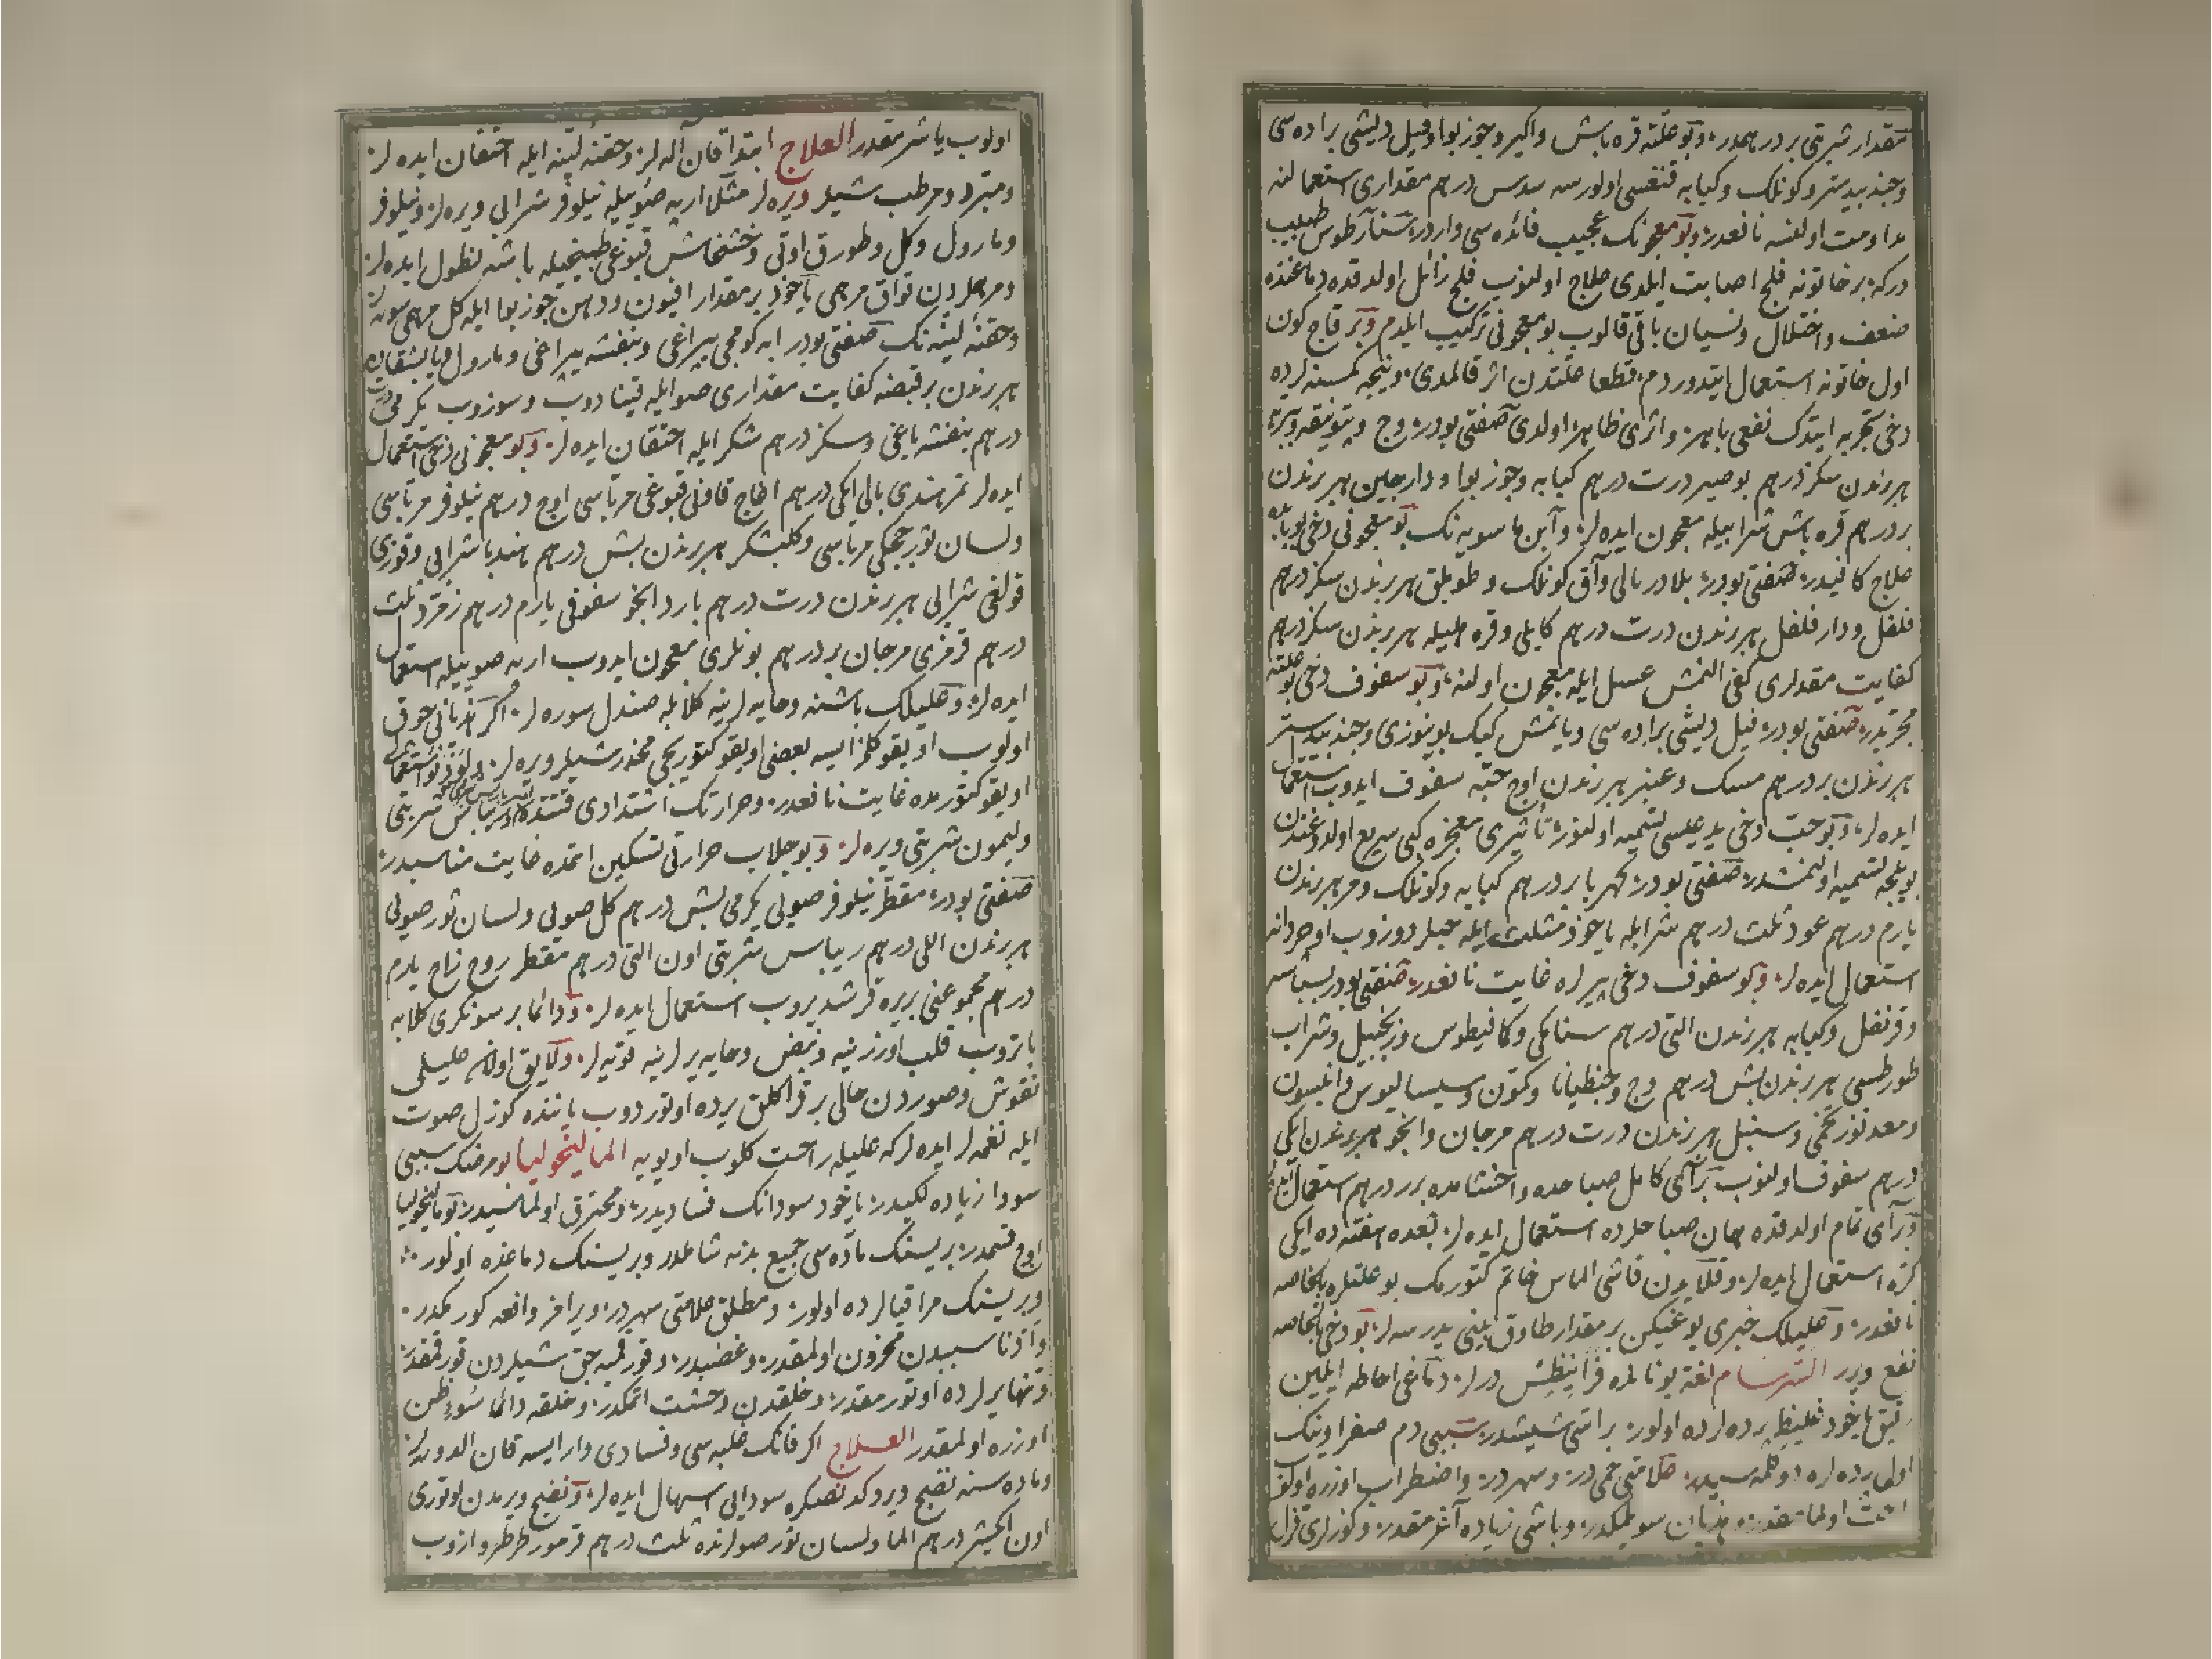 مقدار شربتی بر درهمدر و بو علته قره باش و اکیر و جوز بوا و فیل دیشی براده سی
و جندبیدستر و کونلک و کبابه قنغسی اولورسه سدس درهم مقداری استعمالنه
مداومت اولنسه نافعدر و بو معجونک عجیب فائده سی واردر طبیب
درکه بر خاتونه فلج اصابت ایلدی علاج اولنوب فلج زائل اولدقده دماغنده
ضعف و اختلال و نسیان باقی قالوب بو معجونی ترکیب ایلدم و بر قاچ کون
اول خاتونه استعمال ایتدوردم قطعا علتدن اثر قالمدی و نیجه کمسنه لرده
دخی تجربه ایتدک نفعی باهر و اثری ظاهر اولدی صفتی بودر وج
هر برندن سکز درهم بوصیر درت درهم کبابه و جوز بوا و دارچین هر برندن
بر درهم قره باش شرابیله معجون ایده لر و آبن ماسویه نک بو معجونی دخی بو بابده
علاج کافیدر صفتی بودر بلادر بالی و آق کونلک و طوپلاق هر برندن سکز درهم
فلفل و دارفلفل هر برندن درت درهم کابلی و قره هلیله هر برندن سکز درهم
کفایت مقداری کفی النمش عسل ایله معجون اولنه و بو سفوف دخی بو علته
مجربدر صفتی بودر فیل دیشی براده سی و یانمش کیک بوینوزی و جندبیدستر
هر برندن بر درهم مسک و عنبر هر برندن اوچ حبه سفوف ایدوب استعمال
ایده لر و بو حب دخی ید عیسی تسمیه اولنور تأثیری معجزه کبی سریع اولدوغندن
بویله تسمیه اولنمشدر صفتی بودر کهربا بر درهم کبابه و کونلک و مر هر برندن
یارم درهم عود ثلث درهم شرابله یاخود مثلث ایله حبلر دوزوب اوچر دانه
استعمال ایده لر و بو سفوف دخی پیرلره غایت نافعدر صفتی بودر بسباسه
و قرنفل و کبابه هر برندن التی درهم سنامکی و کمافیطوس و زنجبیل و شراب
طورطسی هر برندن بش درهم وج و جنطیانا و کمون و سیسالیوس و انیسون
و معدنوز تخمی و سنبل هر برندن درت درهم مرجان و انجو هر برندن ایکی
درهم سفوف اولنوب بر آی کامل صباحده و اخشامده برر درهم استعمال
و بر آی تمام اولدقده همان صباحلرده استعمال ایده لر بعده هفته ده ایکی
کره استعمال ایده لر و قلمایدن قاشی الماس خاتم کتورمک بو علتلره بالخاصه
نافعدر و علیلک خبری یوغیکن بر مقدار طاوق بینی یدرسه لر بو دخی بالخاصه
نفع ویرر السرسام لغة یونانده فرانیطس درلر دماغی احاطه ایلین
رقیق یاخود غلیظ پرده لرده اولور بر اتشی شیشدر سببی دم صفراوینک
اول پرده لره دوکلمه سیدر علامتی حمی در و سهردر و اضطراب اوزره اولوب
اولمامقدر و هذیان سویلمکدر و باشی زیاده آغرمقدر و کوزلری قزل
اولوب یاشرمقدر العلاج ابتدا قان آله لر و حقنۀ لینه ایله احتقان ایده لر
و مبرد و مرطب شیلر ویره لر مثلا ارپه صوییله نیلوفر شرابی ویره لر و نیلوفر
و مارول و کل و طورق اوتی و خشخاش قبوغی طبیخیله باشه نطول ایده لر
و مرهملردن قواق مرهمی یاخود بر مقدار افیون و دهن جوز بوا ایله کل مرهمی سوره لر
و حقنۀ لینه نک صفتی بودر ابه کومجی یپراغی و بنفشه یپراغی و مارول و یابشقان
هر برندن بر قبضه کفایت مقداری صو ایله قیناددوب و سوزوب یکرمی درت
درهم بنفشه یاغی و سکز درهم شکر ایله احتقان ایده لر و بو معجونی دخی استعمال
ایده لر تمر هندی بالی ایکی درهم اغاج قاونی قبوغی مرباسی اوچ درهم نیلوفر مرباسی
و لسان ثور چیچکی مرباسی و کلبشکر هر برندن بش درهم هندبا شرابی و قوزی
قولاغی شرابی هر برندن درت درهم بارد انجو سفوفی یارم درهم زمرد ثلث
درهم قرمزی مرجان بر درهم بونلری معجون ایدوب ارپه صوییله استعمال
ایده لر و علیلک باشنه و خایه لرینه کلابله صندل سوره لر اکر هذیانی چوق
اولوب اویقو کلمز ایسه بعضی اویقو کتوریجی مخدر شیلر ویره لر
اویقو کتورمده غایت نافعدر و حرارتک اشتدادی وقتنده ریباس شربتی
و لیمون شربتی ویره لر و بو جلاب حرارتی تسکین اتمده غایت مناسبدر
صفتی بودر مقطر نیلوفر صویی یکرمی بش درهم کل صویی و لسان ثور صویی
هر برندن اللی درهم ریباس شربتی اون التی درهم مقطر روح زاج یارم
درهم مجموعنی بریره قرشدیروب استعمال ایده لر و دائما بر سونکری کلابه
باتروب قلب اوزرینه و نبض و خایه یرلرینه قویه لر و لایق اولان علیلی
نقوش و صوردن خالی بر قراکلق یرده اوتوردوب یاننده کوزل صوت
ایله نغمه لر ایده لر که علیله راحت کلوب اویویه المالیخولیا بو مرضک سببی
سودا زیاده لکیدر یاخود سودانک فسادیدر و محترق اولماسیدر بو مالیخولیا
اوچ قسمدر بریسنک ماده سی جمیع بدنه شاملدر و بریسنک دماغده اولور
و بریسنک مراقیالرده اولور و مطلق علامتی سهردر و پراخر واقعه کورمکدر
و ادنا سببدن محزون اولمقدر و غضبدر و قورقمیه جق شیلردن قورقمقدر
و تنها یرلرده اوتورمقدر و خلقدن وحشت اتمکدر و خلقه دائما سوء ظن
اوزره اولمقدر العلاج اکر قانک غلبه سی و فسادی وار ایسه قان الدوره لر
و ماده سنه نضج ویردکدنصکره سودایی اسهال ایده لر و نضج ویرمدن اوتوری
اون ایکیشر درهم الما و لسان ثور صولرنده ثلث درهم قرمور طرطر و ازوب